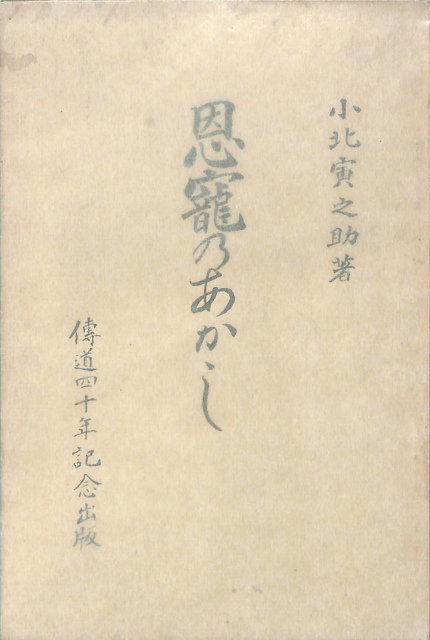 小北寅之助著
恩寵乃あかし
傳道四十年記念出版